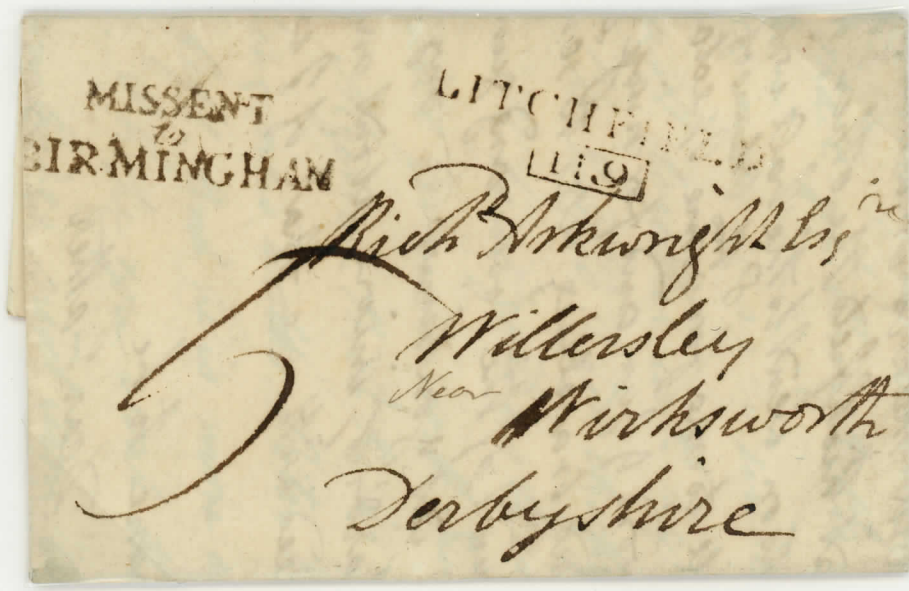 MISSENT
to
BIRMINGHAM
LITCHFIELD
119
Richd Arkwright Esqre
Willersley
Near
Wirksworth
Derbyshire
5